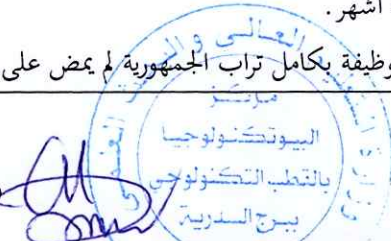 أشهر.
وظيفة بكامل تراب الجمهورية لم يمض على
العالي و
مركز
البيوتكنولوجيا
بالقطب التكنولوجي
ببرج السدرية